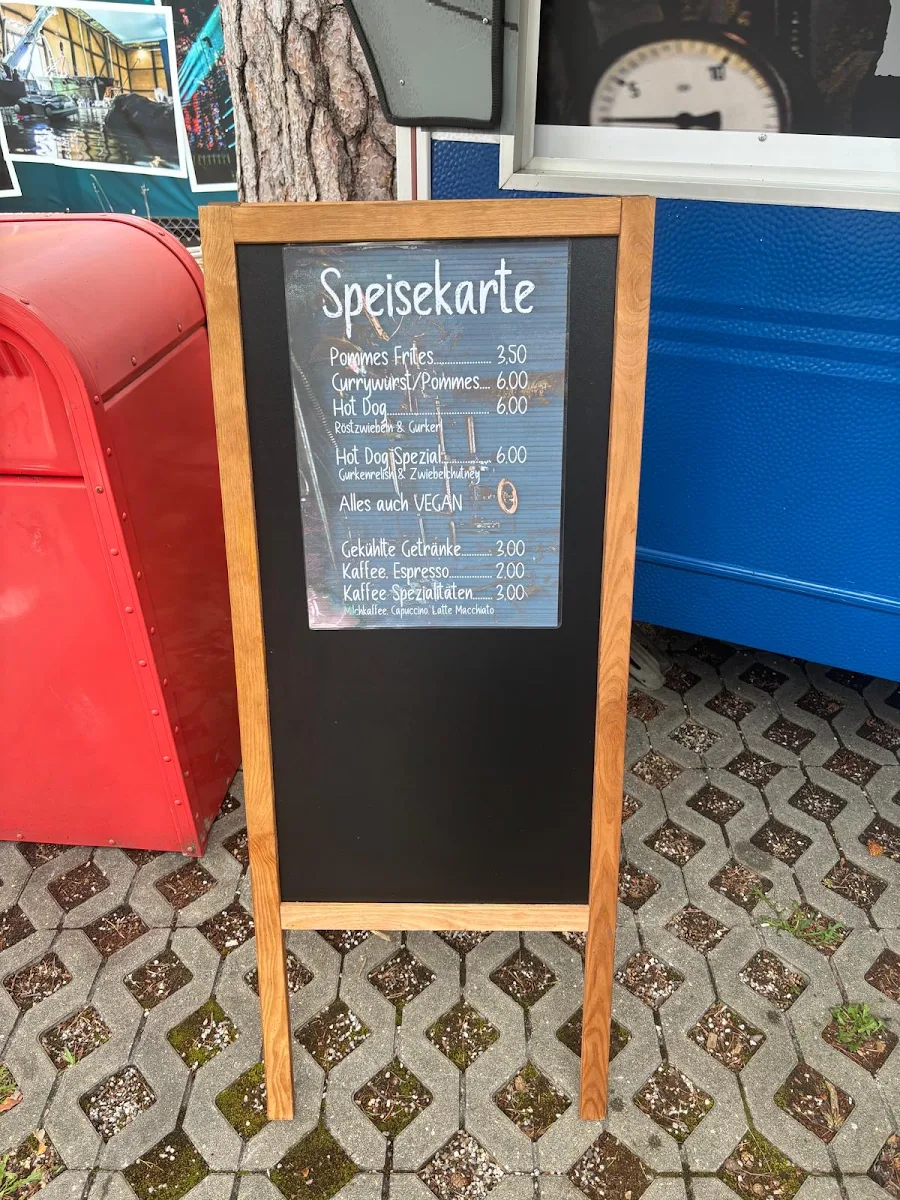 Speisekarte
Pommes Frites.............. 3,50
Currywurst/Pommes.... 6,00
Hot Dog.......................... 6,00
Röstzwiebeln & Gurken
Hot Dog Spezial.............. 6,00
Gurkenrelish & Zwiebelchutney
Alles auch VEGAN
Gekühlte Getränke......... 3,00
Kaffee, Espresso............ 2,00
Kaffee Spezialitäten...... 3,00
Milchkaffee, Capuccino, Latte Macchiato
5
10